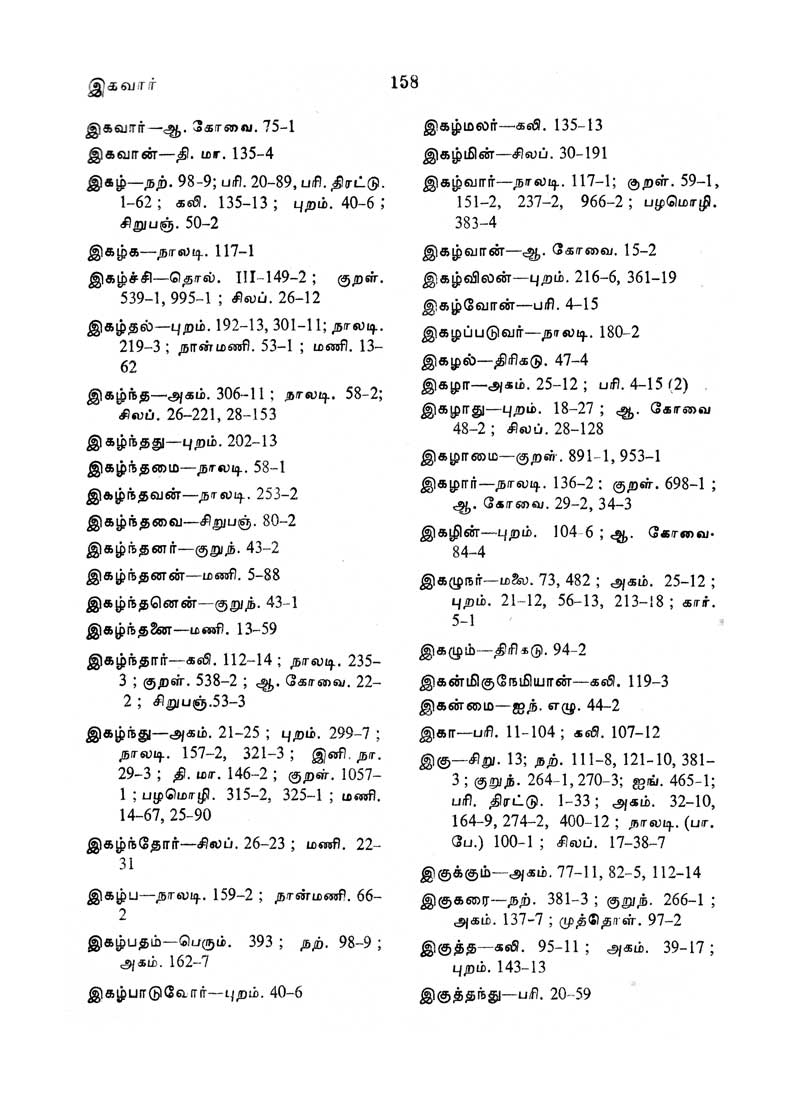 இகவார்
158
இகவார்—ஆ. கோவை. 75–1
இகவான்—தி. மா. 135–4
இகழ்—நற். 98–9; பரி. 20–89, பரி. திரட்டு.
1–62 ; கலி. 135–13 ; புறம். 40–6 ;
சிறுபஞ். 50–2
இகழ்க—நாலடி. 117–1
இகழ்ச்சி—தொல். III–149–2 ; குறள்.
539–1, 995–1 ; சிலப். 26–12
இகழ்தல்—புறம். 192–13, 301–11; நாலடி.
219–3 ; நான்மணி. 53–1 ; மணி. 13–
62
இகழ்ந்த—அகம். 306–11 ; நாலடி. 58–2;
சிலப். 26–221, 28–153
இகழ்ந்தது—புறம். 202–13
இகழ்ந்தமை—நாலடி. 58–1
இகழ்ந்தவன்—நாலடி. 253–2
இகழ்ந்தவை—சிறுபஞ். 80–2
இகழ்ந்தனர்—குறுந். 43–2
இகழ்ந்தனன்—மணி. 5–88
இகழ்ந்தனென்—குறுந். 43–1
இகழ்ந்தனை—மணி. 13–59
இகழ்ந்தார்—கலி. 112–14 ; நாலடி. 235–
3 ; குறள். 538–2 ; ஆ. கோவை. 22–
2 ; சிறுபஞ்.53–3
இகழ்ந்து—அகம். 21–25 ; புறம். 299–7 ;
நாலடி. 157–2, 321–3 ; இனி. நா.
29–3 ; தி. மா. 146–2 ; குறள். 1057–
1 ; பழமொழி. 315–2, 325–1 ; மணி.
14–67, 25–90
இகழ்ந்தோர்—சிலப். 26–23 ; மணி. 22–
31
இகழ்ப—நாலடி. 159–2 ; நான்மணி. 66–
2
இகழ்பதம்—பெரும். 393 ; நற். 98–9 ;
அகம். 162–7
இகழ்பாடுவோர்—புறம். 40–6
இகழ்மலர்—கலி. 135–13
இகழ்மின்—சிலப். 30–191
இகழ்வார்—நாலடி. 117–1; குறள். 59–1,
151–2, 237–2, 966–2 ; பழமொழி.
383–4
இகழ்வான்—ஆ. கோவை. 15–2
இகழ்விலன்—புறம். 216–6, 361–19
இகழ்வோன்—பரி. 4–15
இகழப்படுவர்—நாலடி. 180–2
இகழல்—திரிகடு. 47–4
இகழா—அகம். 25–12 ; பரி. 4–15 (2)
இகழாது—புறம். 18–27 ; ஆ. கோவை
48–2 ; சிலப். 28–128
இகழாமை—குறள். 891–1, 953–1
இகழார்—நாலடி. 136–2 : குறள். 698–1 ;
ஆ. கோவை. 29–2, 34–3
இகழின்—புறம். 104–6 ; ஆ. கோவை.
84–4
இகழுநர்—மலை. 73, 482 ; அகம். 25–12 ;
புறம். 21–12, 56–13, 213–18 ; கார்.
5–1
இகழும்—திரிகடு. 94–2
இகன்மிகுநேமியான்—கலி. 119–3
இகன்மை—ஐந். எழு. 44–2
இகா—பரி. 11–104 ; கலி. 107–12
இகு—சிறு. 13; நற். 111–8, 121–10, 381–
3 ; குறுந். 264–1, 270–3; ஐங். 465–1;
பரி. திரட்டு. 1–33 ; அகம். 32–10,
164–9, 274–2, 400–12 ; நாலடி. (பா.
பே.) 100–1 ; சிலப். 17–38–7
இகுக்கும்—அகம். 77–11, 82–5, 112–14
இகுகரை—நற். 381–3 ; குறுந். 266–1 ;
அகம். 137–7 ; முத்தொள். 97–2
இகுத்த—கலி. 95–11 ; அகம். 39–17 ;
புறம். 143–13
இகுத்தந்து—பரி. 20–59